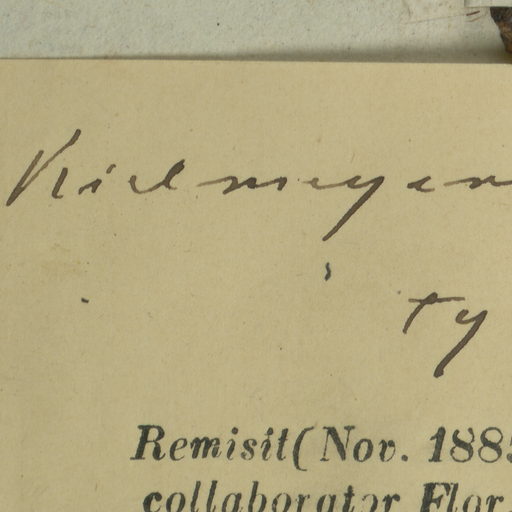 Kielmeyer
ty
Remisit (Nov. 188
collaborator Flor.